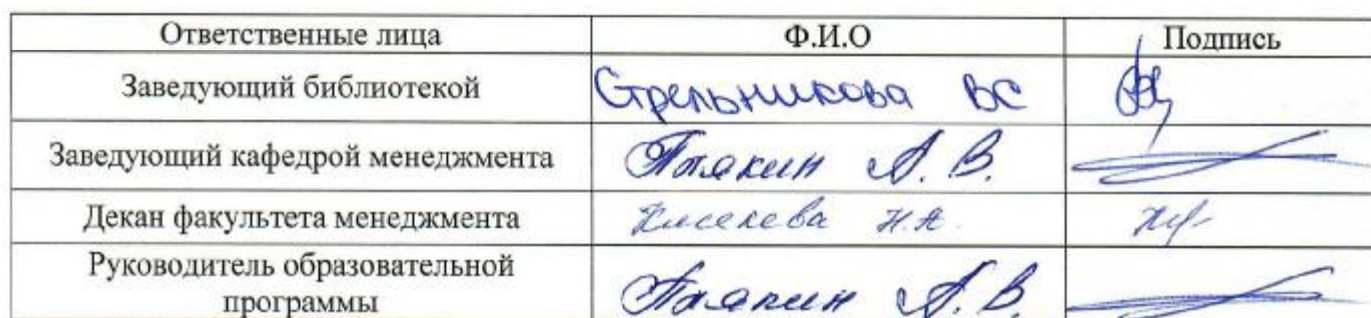 Ответственные лица Ф.И.О Подпись
Заведующий библиотекой Стрельникова ВС
Заведующий кафедрой менеджмента А. В.
Декан факультета менеджмента Киселева Н.А.
Руководитель образовательной
программы А. В.